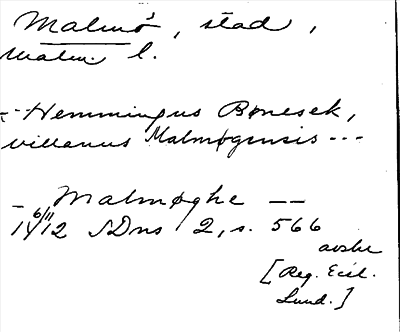 Malmö, stad,
Malm. l.
-- Hemmingus Bonesek,
villanus Malmøgensis ---
— Malmøghe —
6/11 1412 SDns 2, s. 566
avskr
[Reg. Eccl.
Lund.]